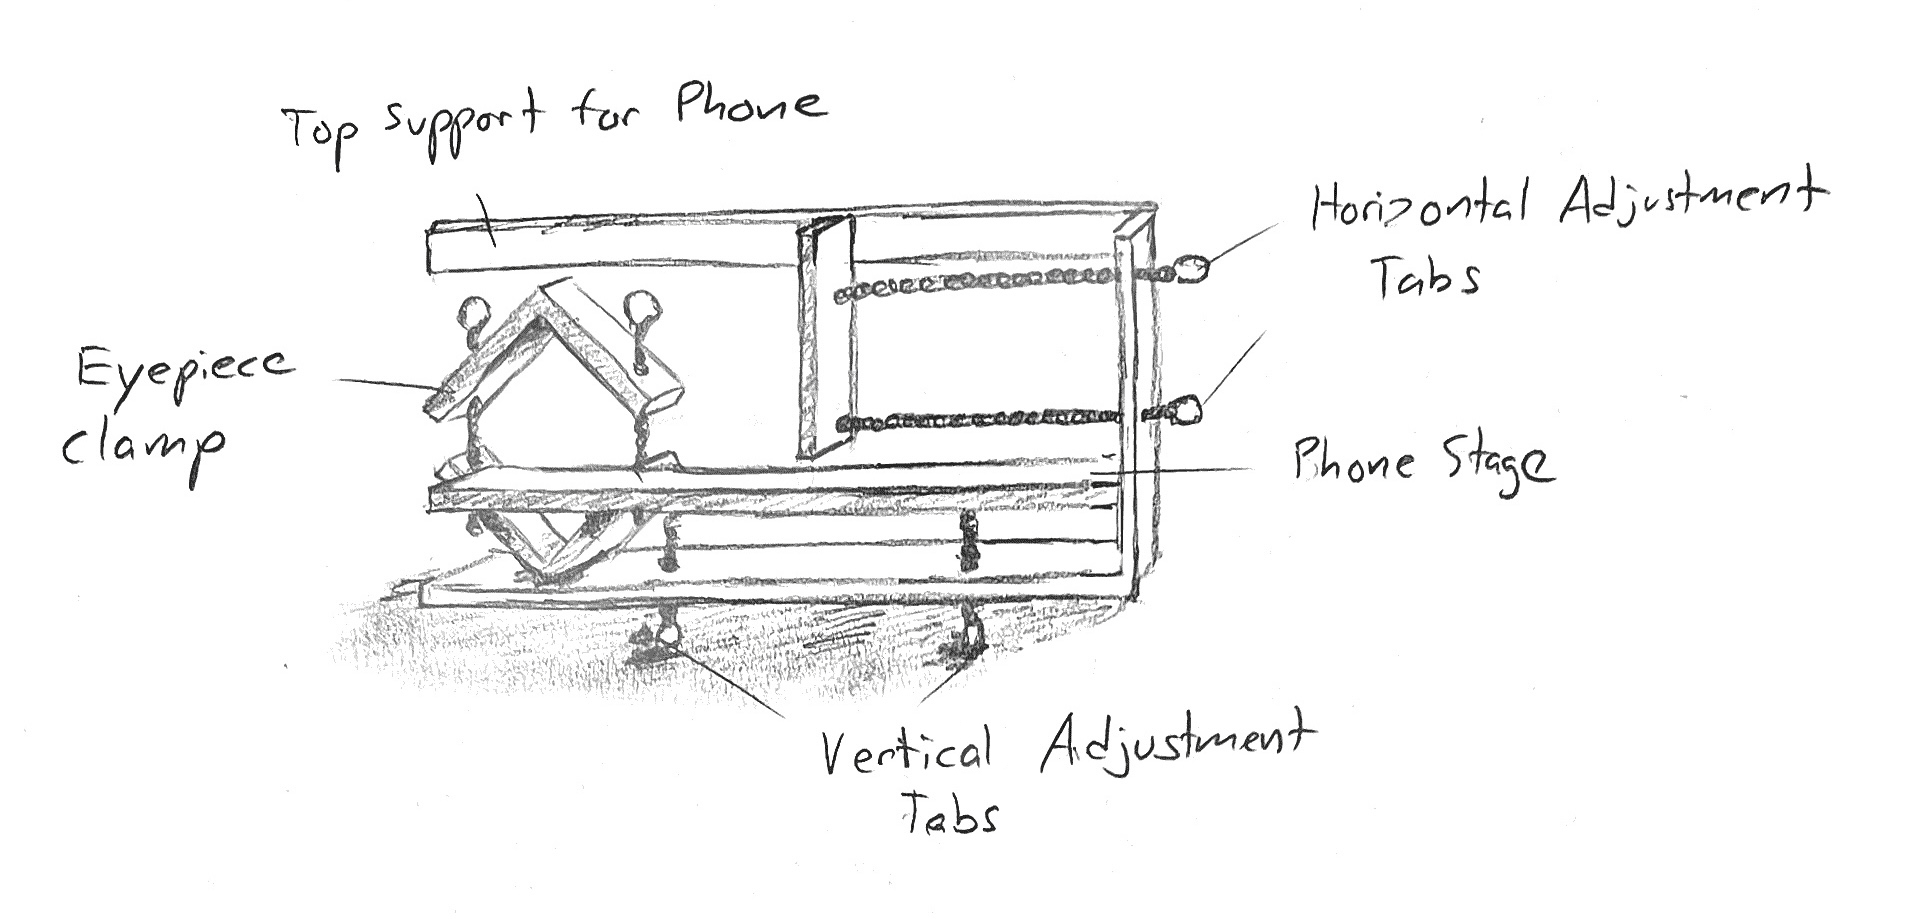 Top Support for Phone
Horizontal Adjustment
Tabs
Eyepiece
clamp
Phone Stage
Vertical Adjustment
Tabs